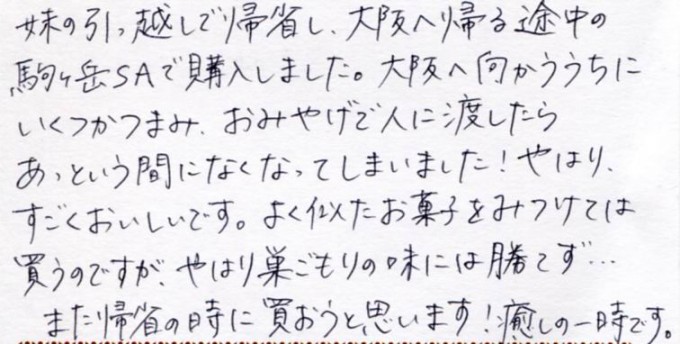 妹の引っ越しで帰省し、大阪へ帰る途中の
駒ヶ岳SAで購入しました。大阪へ向かううちに
いくつかつまみ、おみやげで人に渡したら
あっという間になくなってしまいました！やはり、
すごくおいしいです。よく似たお菓子をみつけては
買うのですが、やはり巣ごもりの味には勝てず…
また帰省の時に買おうと思います！癒しの一時です。